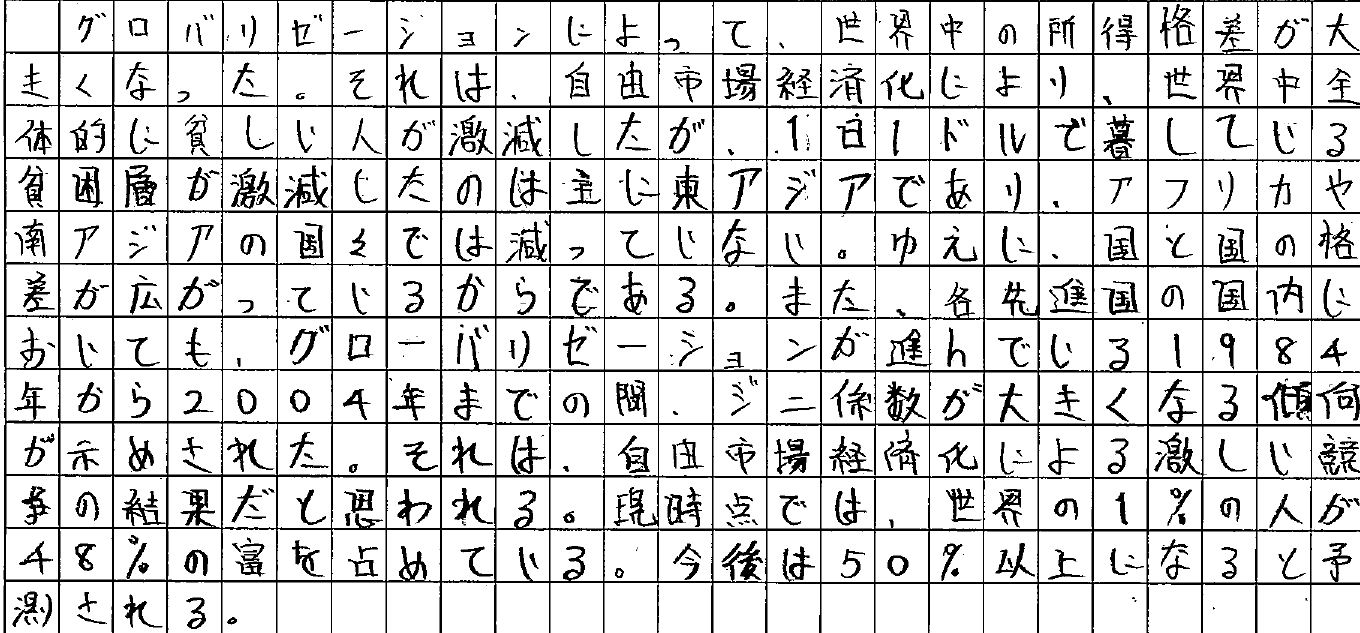 グロバリゼーションによって、世界中の所得格差が大
きくなった。それは、自由市場経済化により、世界中全
体的に貧しい人が激減したが、1日1ドルで暮している
貧困層が激減したのは主に東アジアであり、アフリカや
南アジアの国々では減っていない。ゆえに、国と国の格
差が広がっているからである。また、各先進国の国内に
おいても、グローバリゼーションが進んでいる1984
年から2004年までの間、ジニ係数が大きくなる傾向
が示めされた。それは、自由市場経済化による激しい競
争の結果だと思われる。現時点では、世界の1%の人が
48%の富を占めている。今後は50%以上になると予
測される。